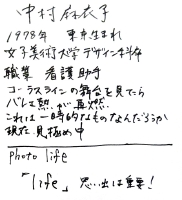 中村麻衣子
1978年 東京生まれ
女子美術大学デザイン科卒
職業 看護助手
コーラスラインの舞台を見てから
バレエ熱が再燃
これは一時的なものなんだろうか
現在見極め中
photo life
「life」 思い出は重要!